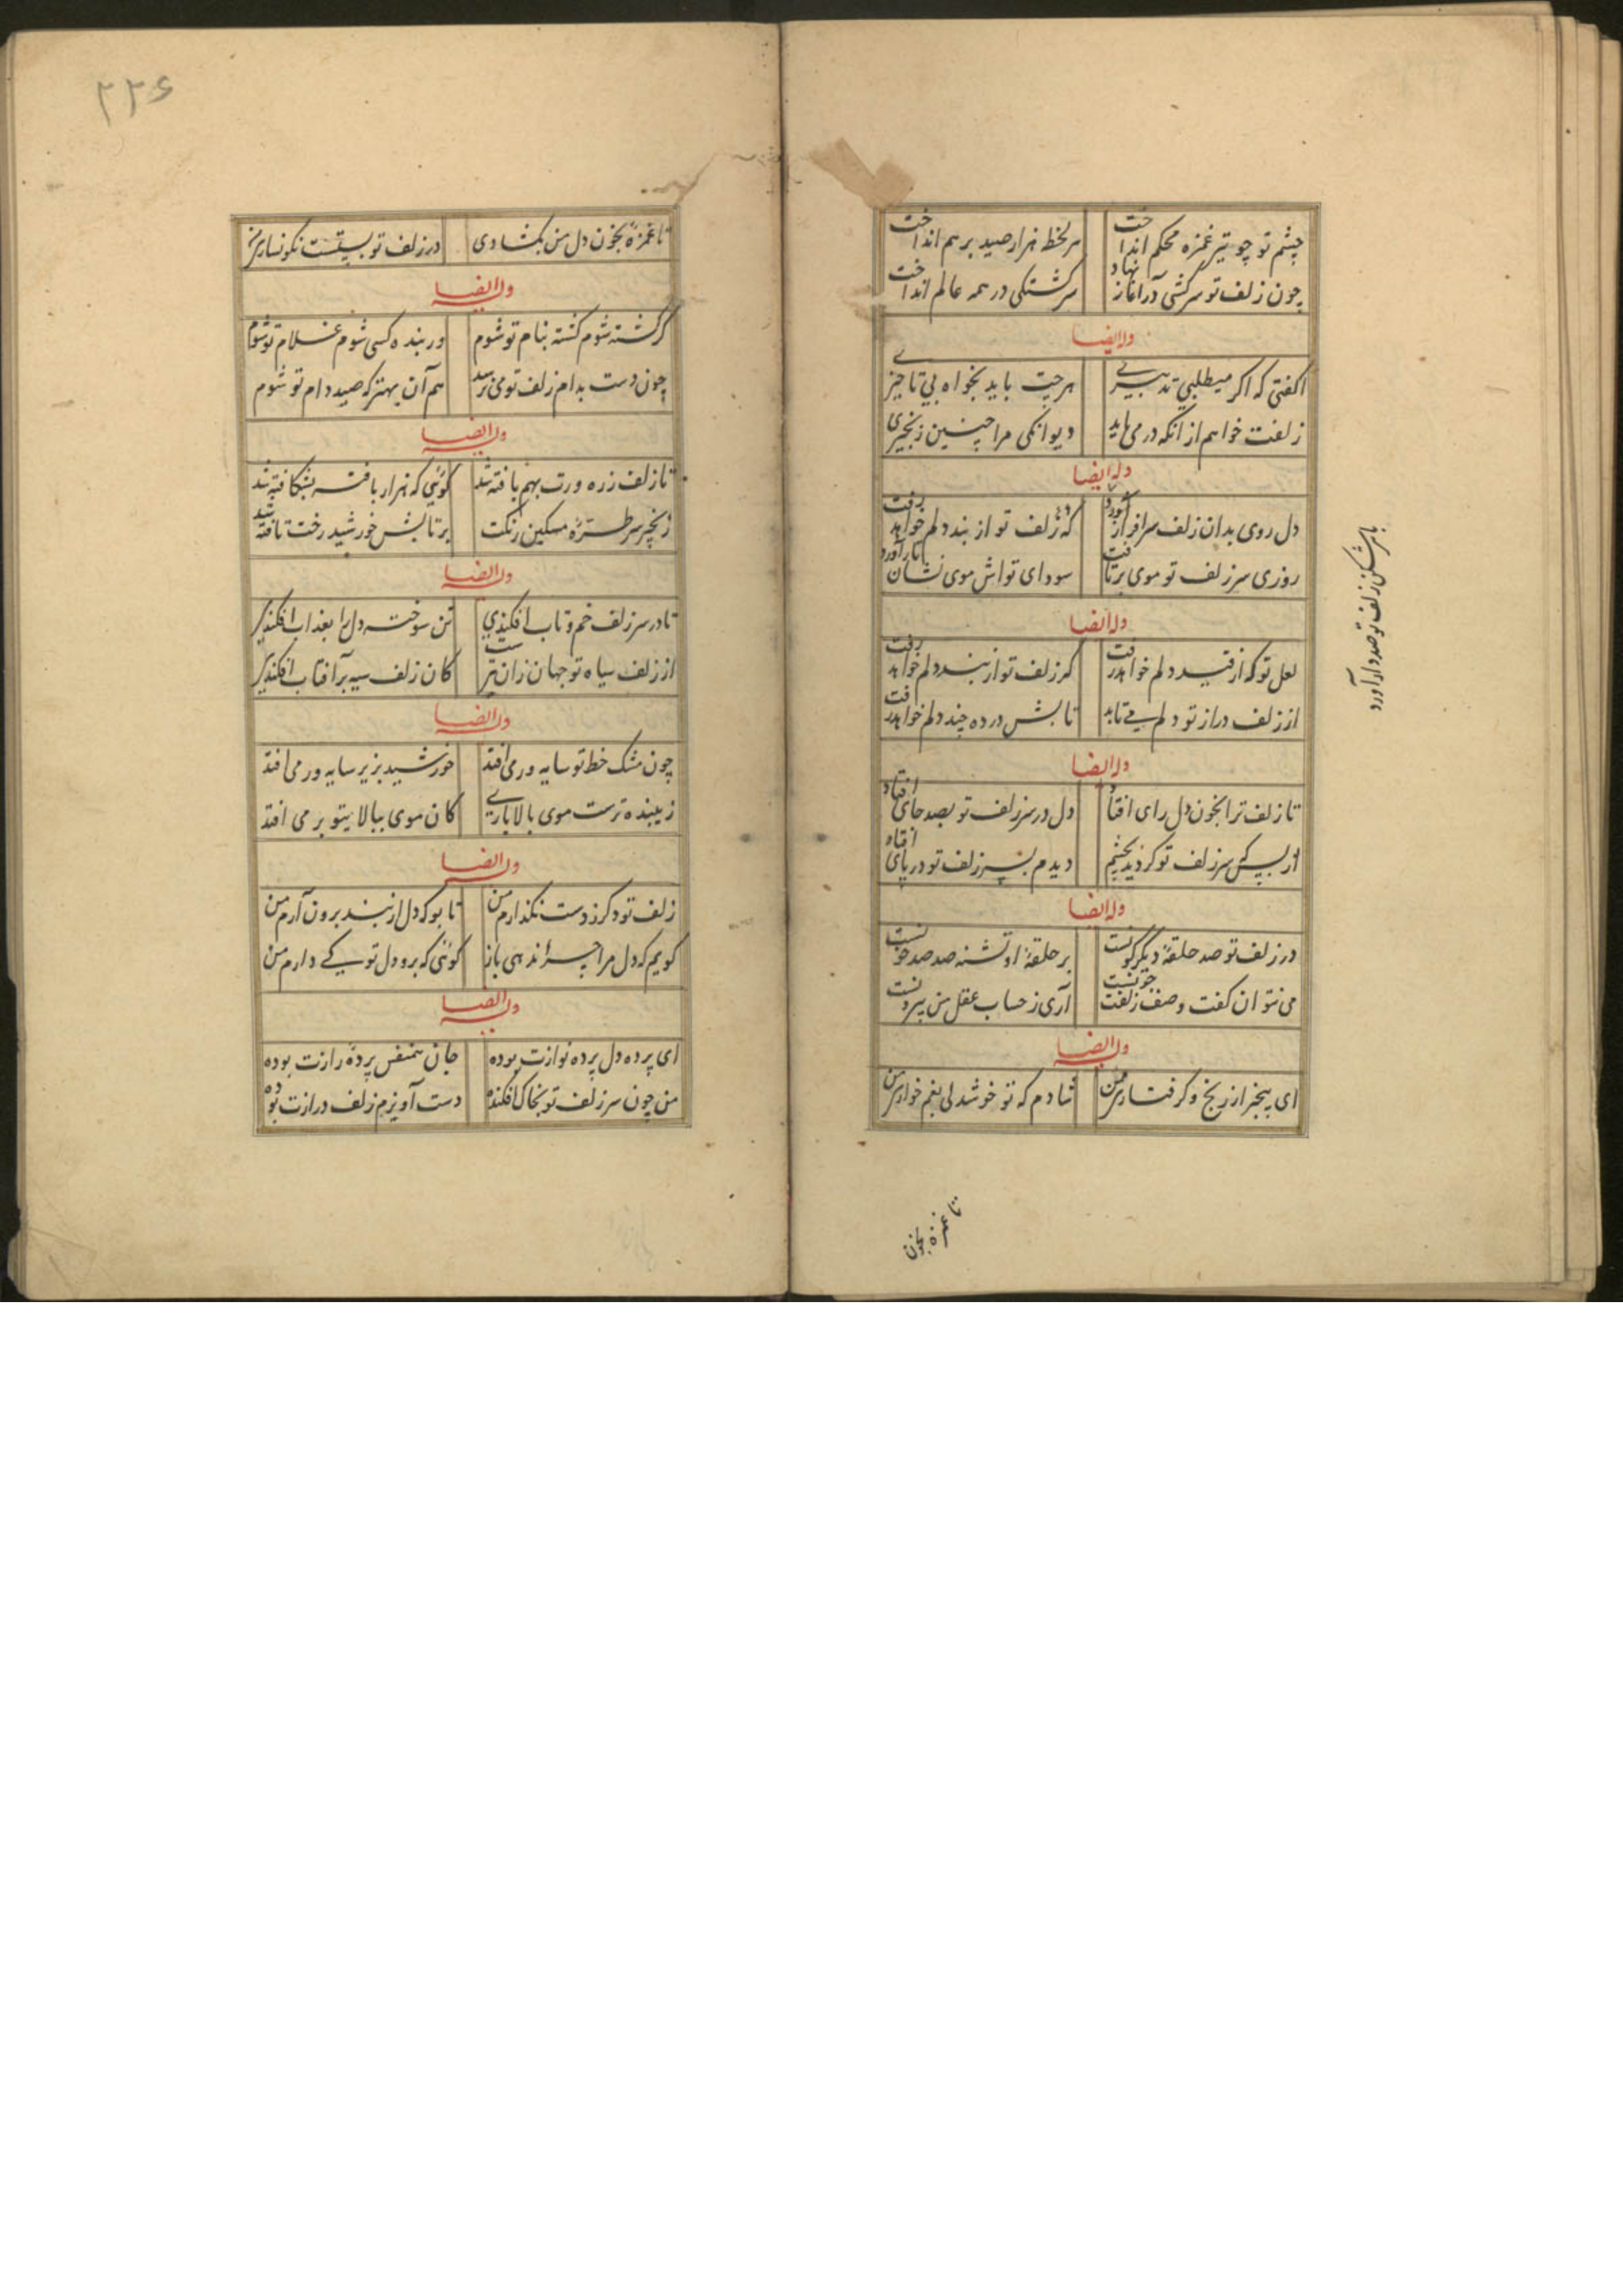 چشم تو چو تیر غمزه محکم انداخت هر لحظه هزار صید بر هم انداخت
چون زلف تو سرکشی در آغاز نهاد سرگشتگی در همه عالم انداخت
وله ایضا
گفتی که اگر میطلبی تدبیری هرچت باید بخواه بی تاخیری
زلفت خواهم از آنکه در می باید دیوانگی مرا چنین زنجیری
وله ایضا
دل روی بدان زلف سرافراز آورد
که زلف تو از بند دلم خواهد رفت
روزی سر زلف تو موی برتافت سودای تواش موی نشان باز آورد
با هر شکن زلف تو صد راز آورد
وله ایضا
لعل تو که از قید دلم خواهد رفت کز زلف تو از بند دلم خواهد رفت
از زلف دراز تو دلم می تابد تابش در ده چند دلم خواهد رفت
وله ایضا
تا زلف ترا بخون دل رای افتاد دل در سر زلف تو بصد جای افتاد
از بس که سر زلف تو گردید بچشم دیدم سر زلف تو در پای افتاد
وله ایضا
در زلف تو صد حلقهٔ دیگر گونست بر حلقهٔ او تشنه صد صد خونست
می نتوان گفت وصف زلفت چونست آری ز حساب عقل من بیرونست
وله ایضا
ای بیخبر از رنج و گرفتاری من شادم که تو خوشدلی بغم خواری من
تا غمزه بخون
۲۲۶
تا غمزهٔ بخون دل من بگشادی در زلف تو بستست نگونساری من
وله ایضا
گر کشته شوم کشته بنام تو شوم ور بنده کسی شوم غلام تو شوم
چون دست بدام زلف تو می نرسد هم آن بهتر که صید دام تو شوم
وله ایضا
تا زلف زره ورت بهم بافته شد گوئی که هزار بافته بشکافته شد
زنجیر سر طرهٔ مسکین رنگت بر تابش خورشید رخت تافته شد
وله ایضا
تا در سر زلف خم و تاب افکندی تن سوخته دل را بعذاب افکندی
از زلف سیاه تو جهان زان تیرست کان زلف سیه بر آفتاب افکندی
وله ایضا
چون مشک خط تو سایه ور می افتد خورشید بزیر سایه ور می افتد
زیبنده ترست موی بالا باری کان موی ببالا بتو بر می افتد
وله ایضا
زلف تو دگر ز دست نگذارم من تا بو که دل از بند برون آرم من
گویم که دل مرا چرا ندهی باز گوئی که برو دل تو کی دارم من
وله ایضا
ای پرده دل پرده نوازت بوده جان همنفس پردهٔ رازت بوده
من چون سر زلف تو بخاک افکنده دست آویزم زلف درازت بوده